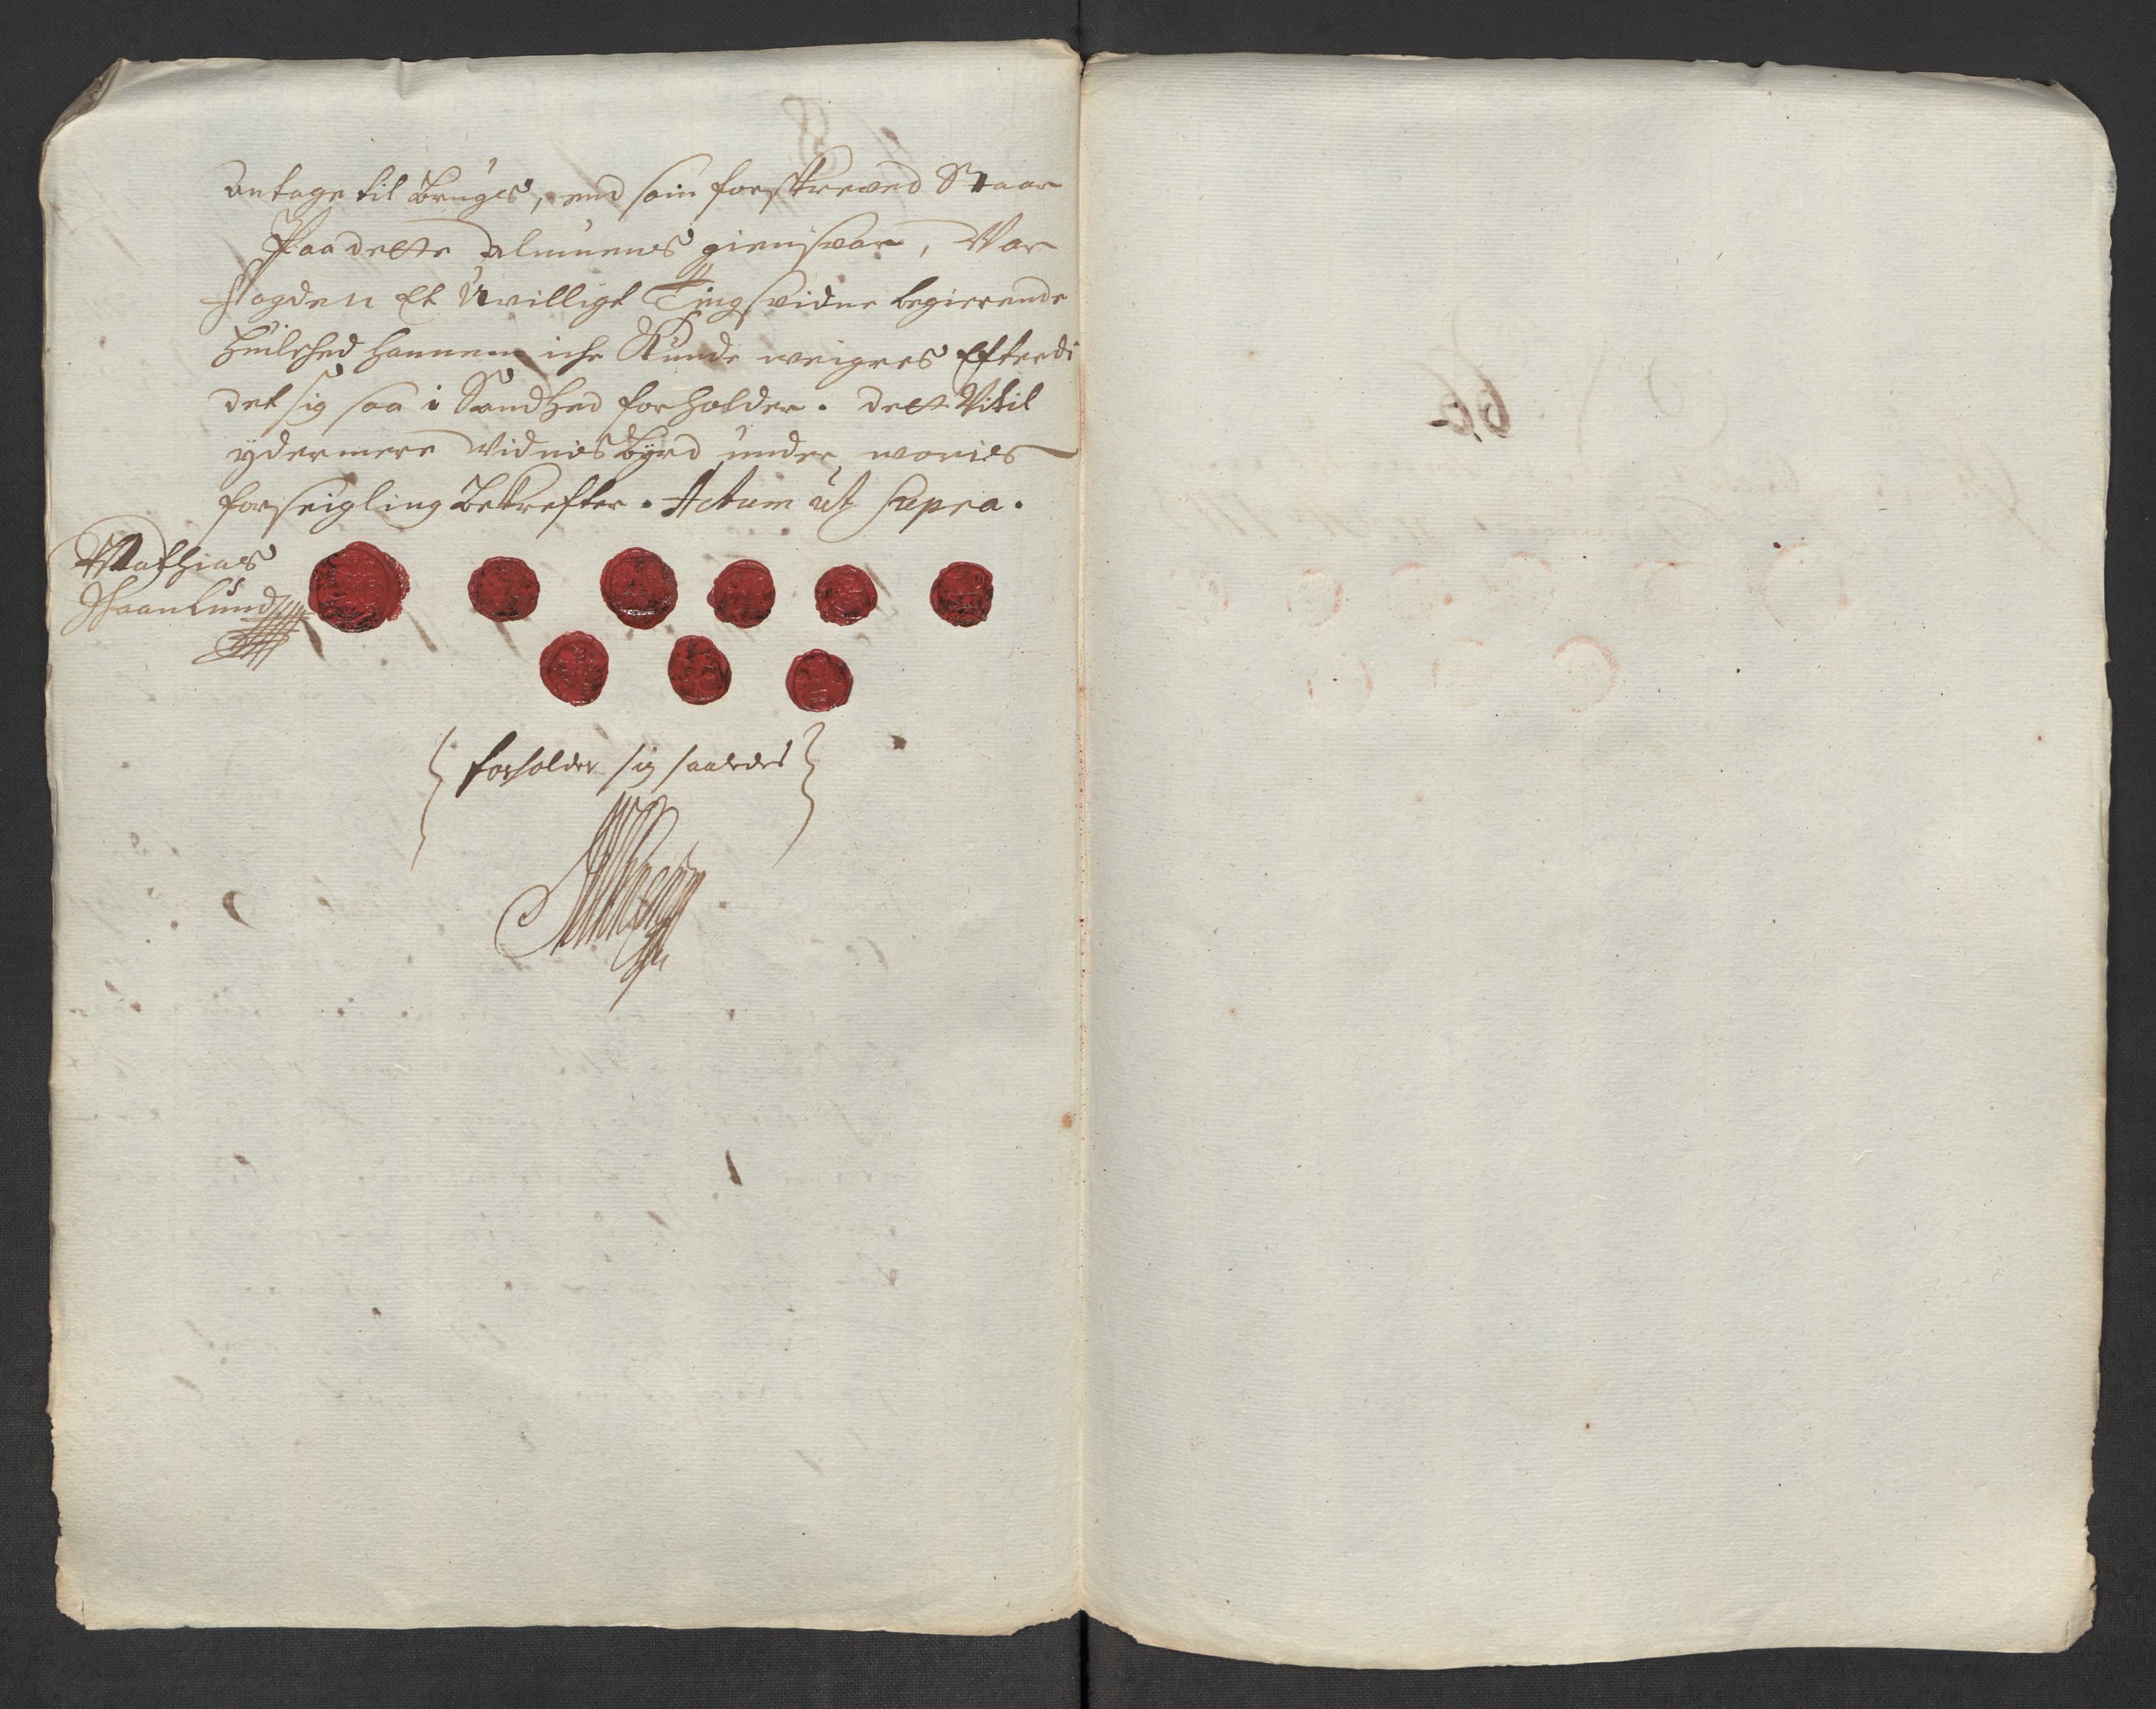 antage til Brugs, end som forskreved Staar
Paa dette Almuens giensvar, Var
fogden Et Uvilligt Tingsvidne begierende
huilched hannem iche Kunde weigres Efterdi
det sig saa i Sandhed forholder. dett Vi til
ydermere Vidnisbyrd under worres
forseigling Bekrefter. Actum ut supra.
Mathias
forholder sig saaledes